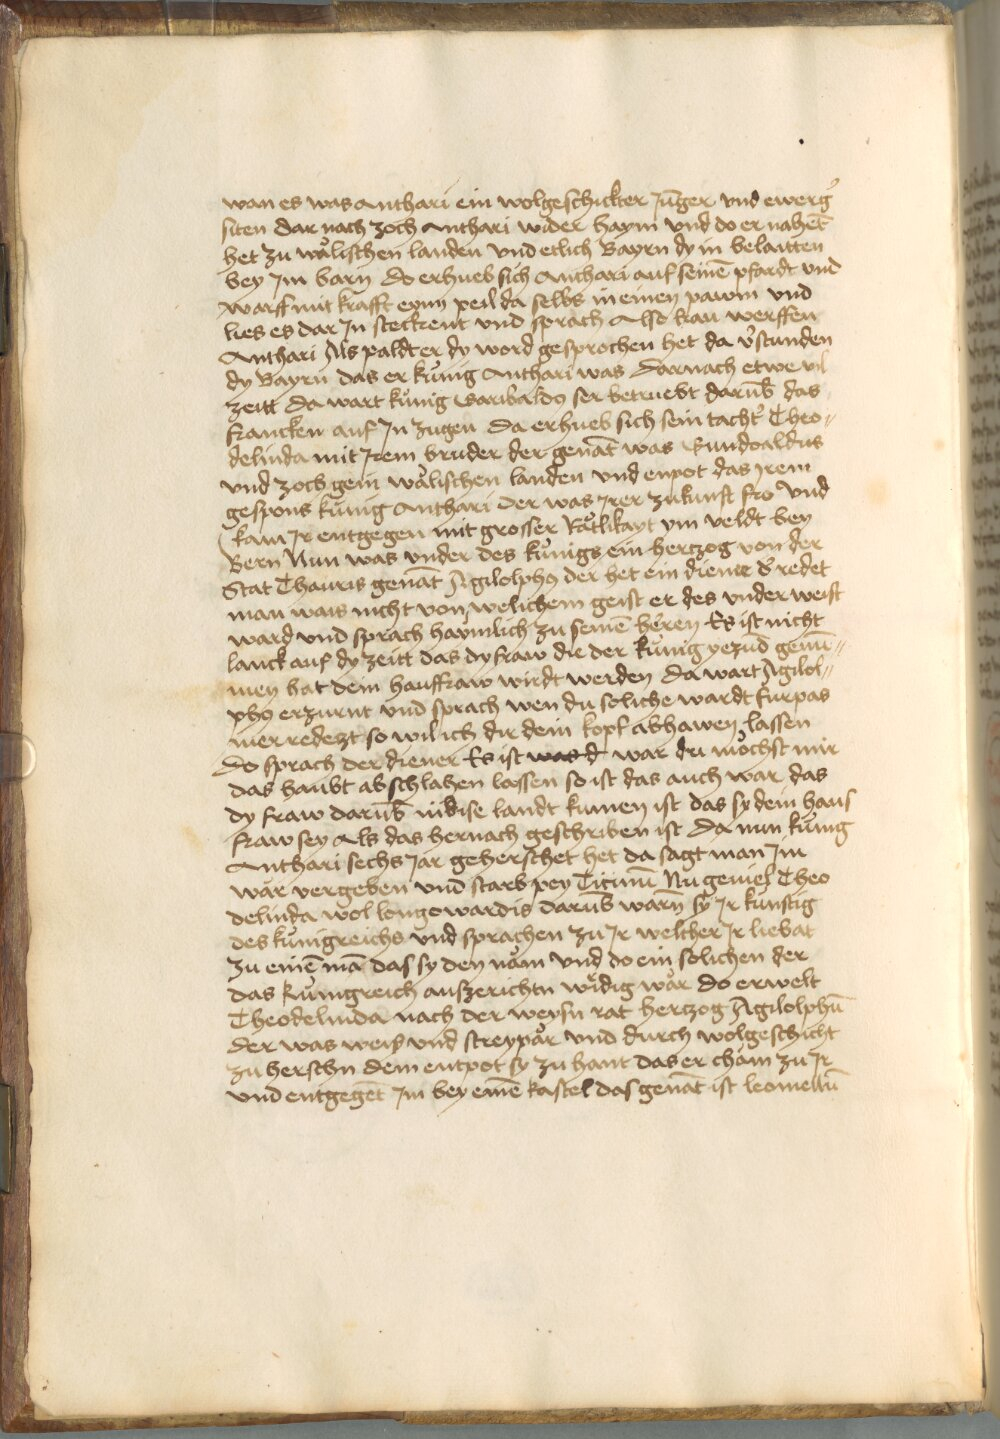 wan es was Anthari ein wolgeschickter Jūger vnd ewerg᷑
siten dar nach zoch Anthari wider haym vnd do er nahēt
het zu wålischen landen vnd etlich Bayrn dy in belaitten
bey Jm warn do erhueb sich Anthari auf seinē pfardt vnd
warff mit krafft eynn peil da selbs in einen pawm vnd
lies es dar Jn steckent vnd sprach Also kan werffen
Anthari Als paldt er dy word gesprochen het da v᷑stunden
dy Bayrn das er kůnig Anthari was Darnach etwe vil
zeitt da wart kůnig Garibaldꝯ ser betruebt darūb das
francken auf Jn zugen Da erhueb sich sein tacht᷑ Theo⸗
delinda mit Jrem bruder der genāt was Gundoaldus
vnd zoch gein wålischen landen vnd enpot das Jrem
gespons kůnig Anthari der was Jrer zukunft fro vnd
kam Jr entgegen mit grosser Råtlikayt ym veldt bey
Bern Nun was vnder des kůnigs ein hertzog von der
Stat Thauris genāt Agilolphꝯ der het ein diener d᷑ redet
man wais nicht von welichem geist er des vnderweist
ward vnd sprach haymlich zu seinē heren Es ist nicht
lanck auf dy zeitt das dy fraw die der kůnig yezūd genū⸗
men hat dein hauffraw wirdt werden Da wart Agilol⸗
phꝯ erzurnt vnd sprach wen du soliche wardt furpas
mer redezt so wil ich dir dein kopf abhawen lassen
Do sprach der diener Es ist was d war du mőchst mir
das haubt abschlahen lassen so ist das auch war das
dy fraw darūb in dise landt kumen ist das sy dein haus
fraw sey Als das hernach geschriben ist Da nun kůnig
Anthari sechs Jar geherschet het da sagt man Jm
wår vergeben vnd starb pey Ticinū Nu geuiel Theo
delinda wol longowardis darūb warn sy Jr kunstig
des kůnigreichs vnd sprachen zu Jr welcher Jr liebat
zu einē mā das sy den nåm vnd do ein solichen der
das kůnigreich auszerichtn wirdig wår do erwelt
Theodelinda nach der weysn rat hertzog Agilolphū
der was weis vnd streypår vnd durch wolgeschicht
zu herschn dem entpot sy zu hant das er cham zu Jr
vnd entgegēt Jm bey einē kastel das genāt ist leomellū